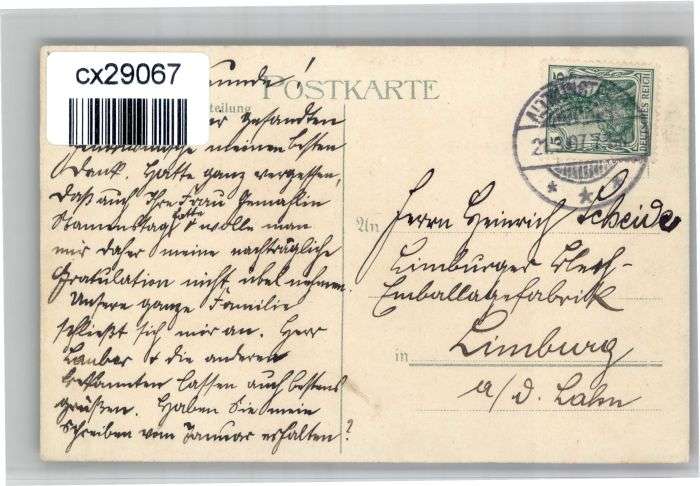 cx29067
POSTKARTE
teilung
gesandten
meinen besten
Dank. Hatte ganz vergessen,
daß auch Ihre Frau Gemahlin
Namenstag hatte & wolle man
mir daher meine nachträgliche
Gratulation nicht übel nehmen.
Unsere ganze Familie
schließt sich mir an. Herr
Lauber & die anderen
Bekannten lassen auch bestens
grüßen. Haben Sie mein
Schreiben vom Januar erhalten?
An Herrn Heinrich Scheide
Limburger Blech-
Emballagefabrik
in Limburg
a/d. Lahn
DEUTSCHES REICH